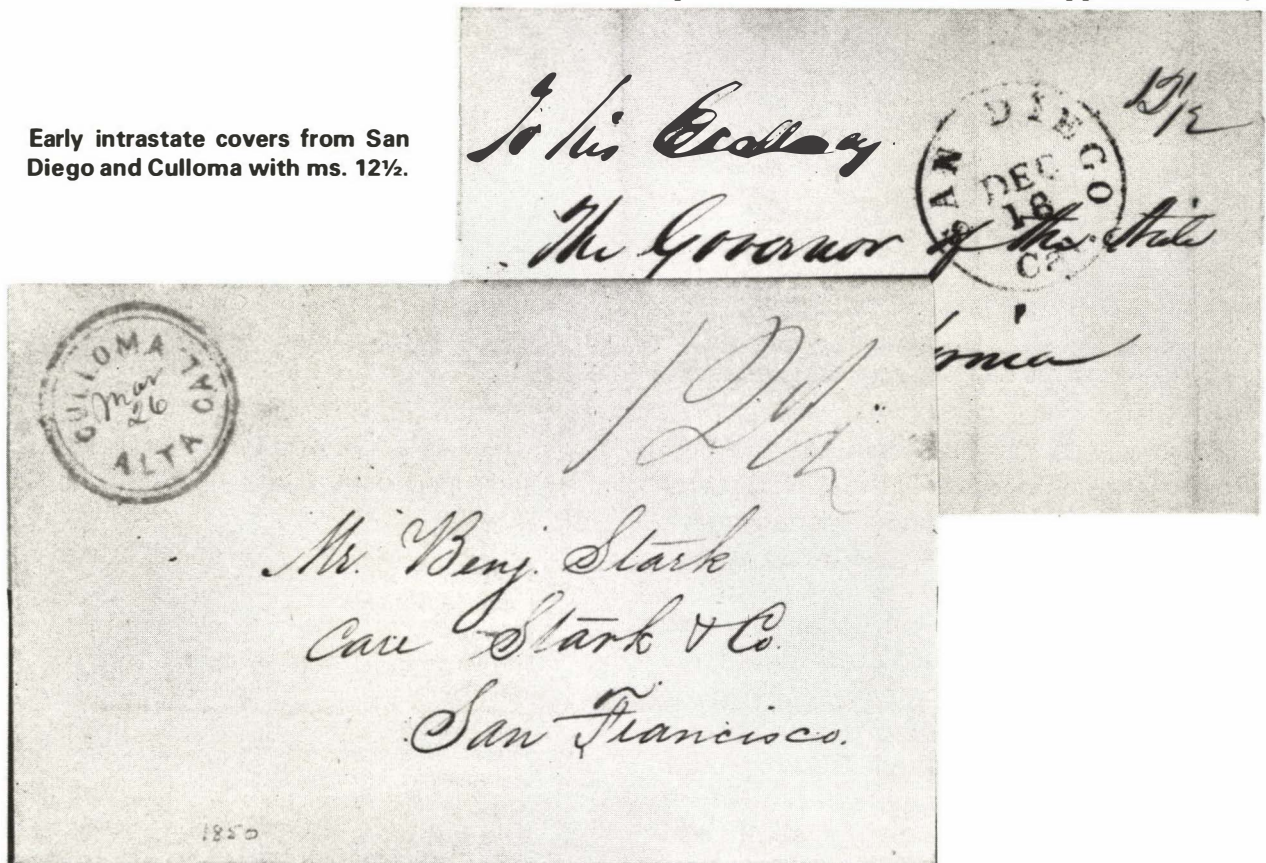 Early intrastate covers from San
Diego and Culloma with ms. 12½.
To his Excellency
The Governor of the State
12½
SAN DIEGO
DEC
18
Cal.
CULLOMA ALTA CAL
Mar
26
12½
Mr. Benj. Stark
Care Stark & Co.
San Francisco.
1850